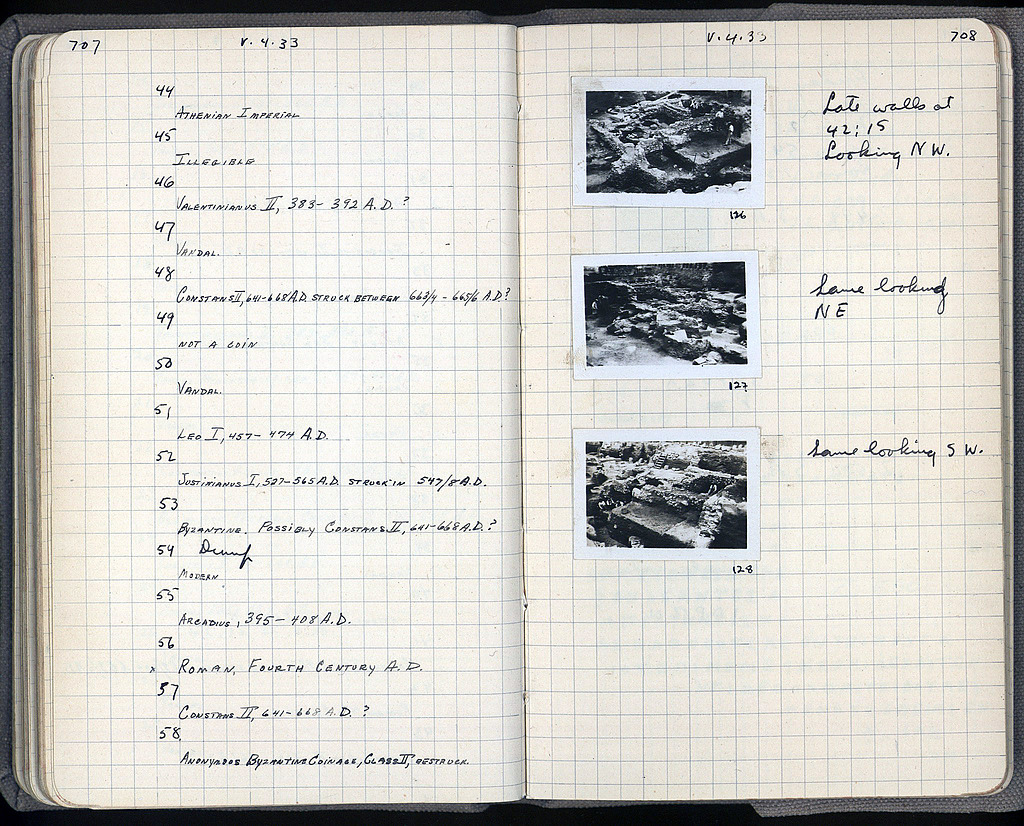 707
V.4.33
44
ATHENIAN IMPERIAL
45
ILLEGIBLE
46
VALENTINIANUS II, 383-392 A.D.?
47
VANDAL.
48
CONSTANS II, 641-668 A.D. STRUCK BETWEEN 663/4 - 665/6 A.D?
49
NOT A COIN
50
VANDAL.
51
LEO I, 457-474 A.D.
52
JUSTINIANUS I, 527-565 A.D. STRUCK IN 547/8 A.D.
53
BYZANTINE. POSSIBLY CONSTANS II, 641-668 A.D.?
54 Dump
MODERN
55
ARCADIUS, 395-408 A.D.
56
x ROMAN, FOURTH CENTURY A.D.
57
CONSTANS II, 641-668 A.D. ?
58.
ANONYMOUS BYZANTINE COINAGE, CLASS II, RESTRUCK.
V.4.33
708
Late walls at
42:15
Looking NW.
126
Same looking
NE
127
Same looking SW.
128